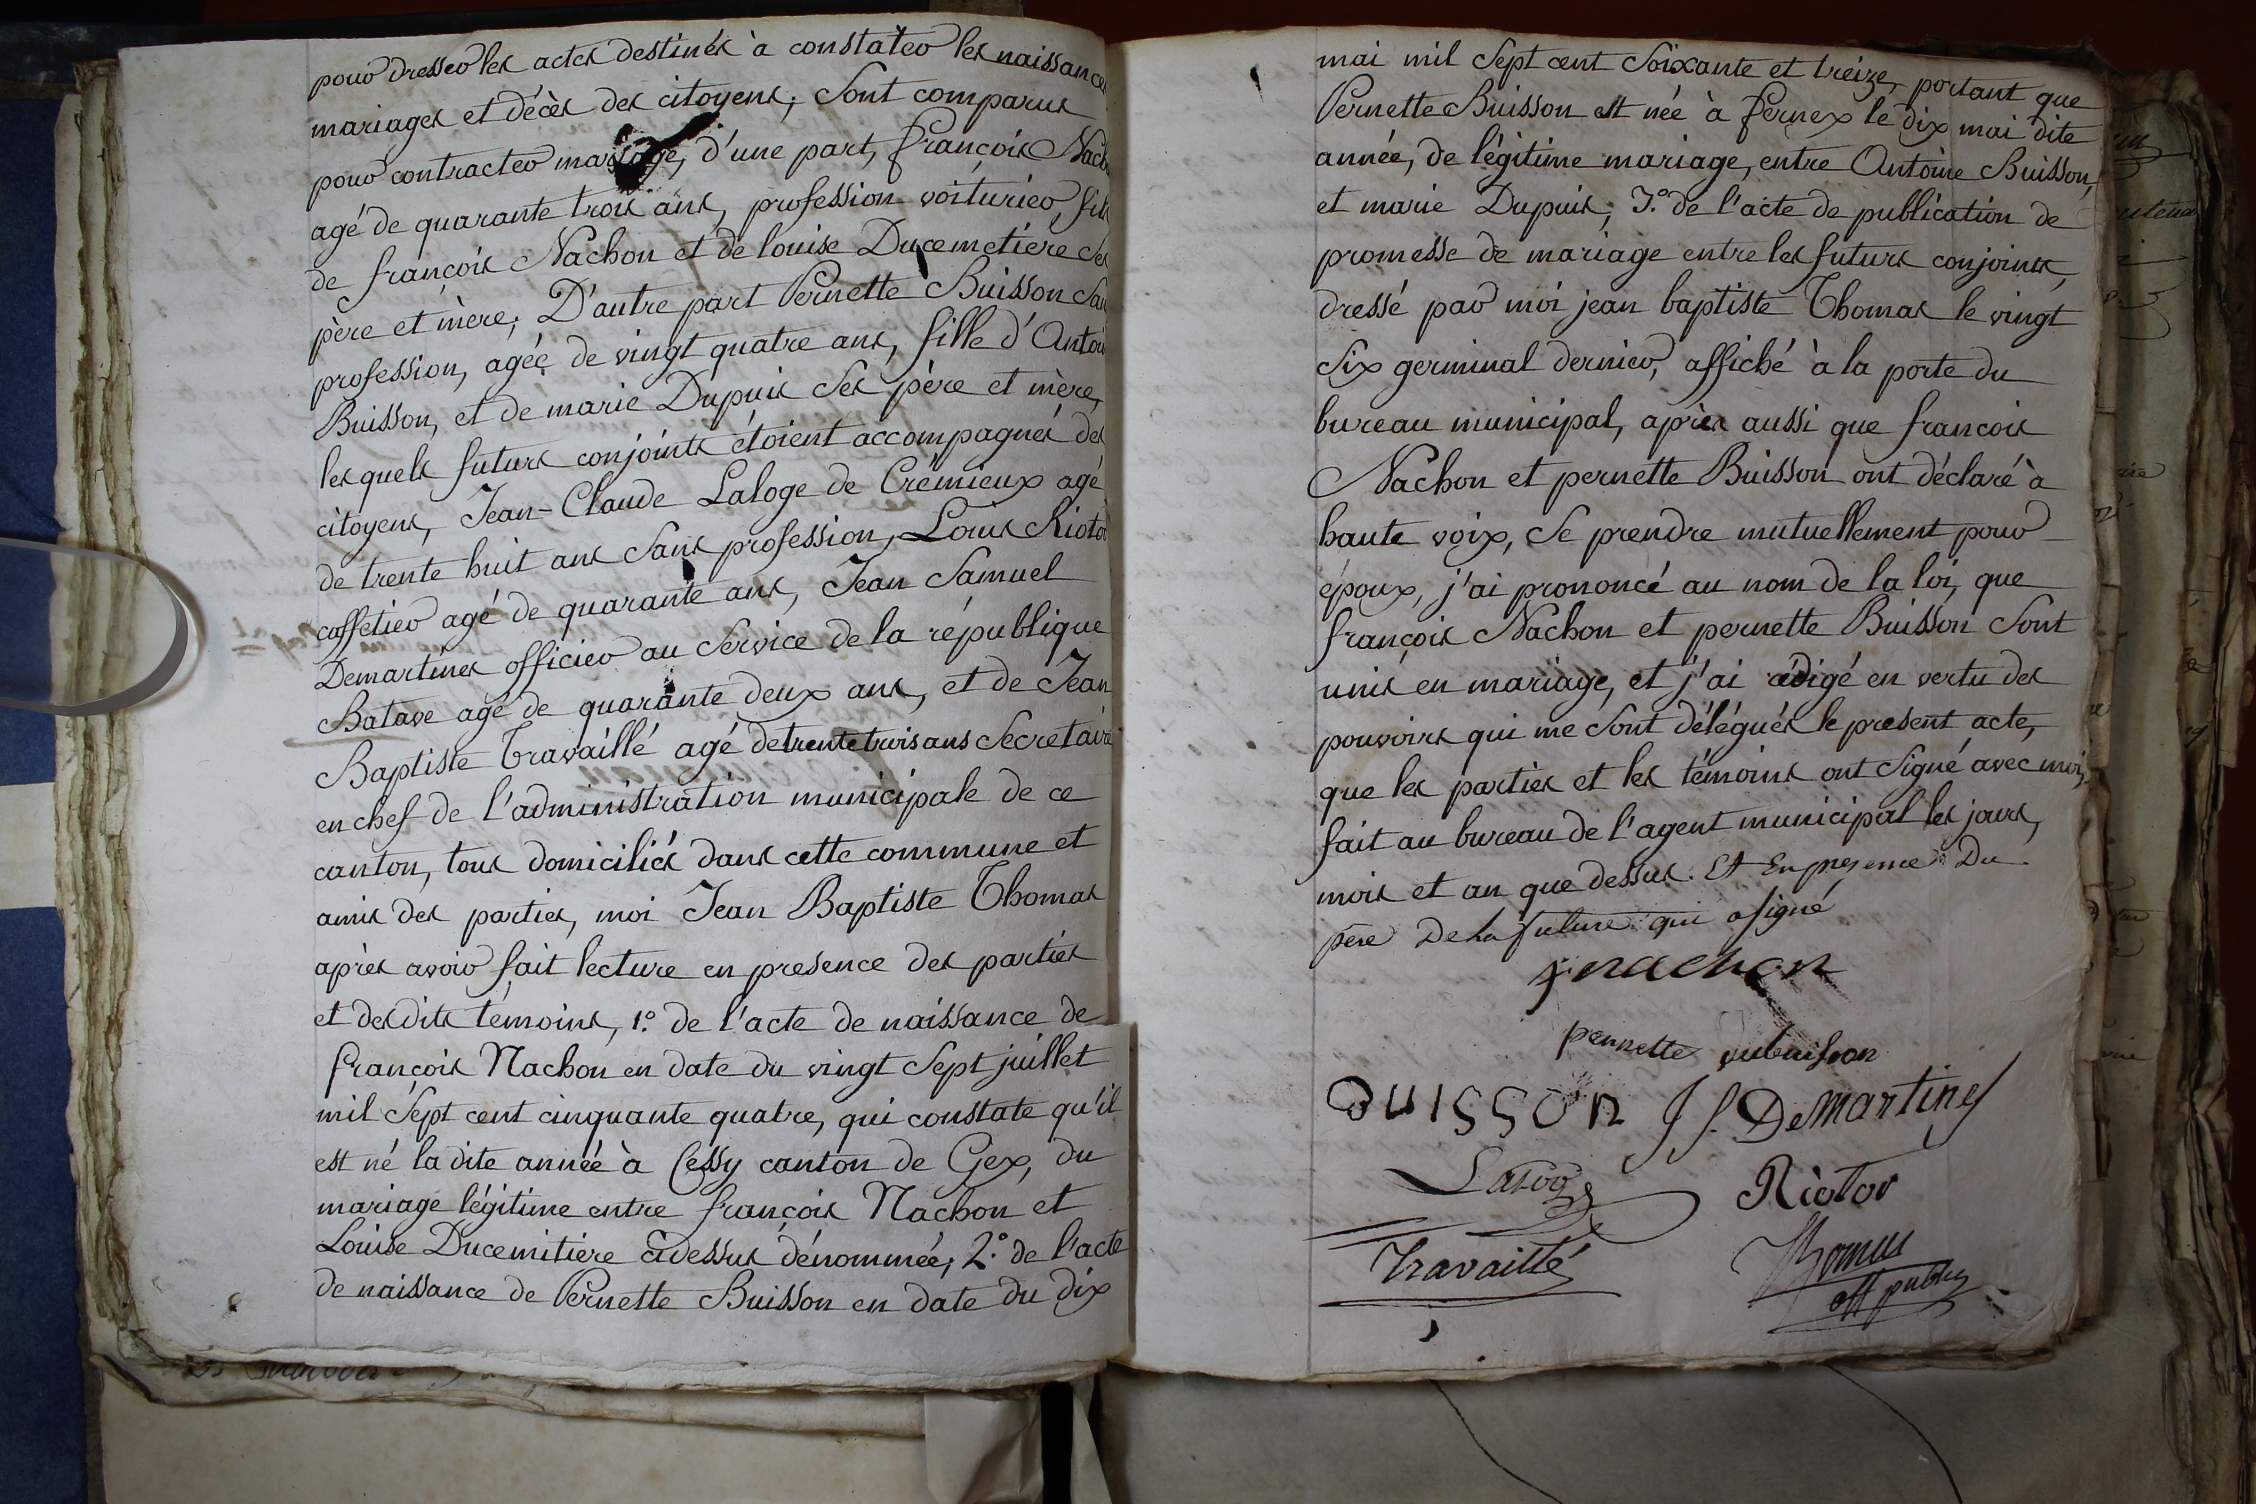 pour dresser les actes destinés à constater les naissances
mariages et décès des citoyens, sont comparus
pour contracter mariage, d'une part, françois Nacho
agé de quarante trois ans, profession voiturier, fils
de françois Nachon et de louise Ducemetiere ses
père et mère; D'autre part Pernette Buisson San
profession, agée de vingt quatre ans, fille d'Antoi
Buisson, et de marie Dupuis ses père et mère,
lesquels futurs conjoints étoient accompagnés des
citoyens, Jean-Claude Laloge de Crémieux agé
de trente huit ans sans profession, Louis Riotor
caffetier agé de quarante ans, Jean Samuel
Demartines officier au service de la république
Batave agé de quarante deux ans, et de Jean
Baptiste Travaillé agé de trente trois ans Secretaire
en chef de l'administration municipale de ce
canton, tous domiciliés dans cette commune et
amis des parties, moi Jean Baptiste Thomas
après avoir fait lecture en presence des parties
et desdits témoins, 1.° de l'acte de naissance de
françois Nachon en date du vingt Sept juillet
mil Sept cent cinquante quatre, qui constate qu'il
est né la dite année à Cessy canton de Gex, du
mariage légitime entre françois Nachon et
Louise Ducemitiere cidessus dénommée, 2.° de l'acte
de naissance de Pernette Buisson en date du dix
mai mil Sept cent Soixante et treize, portant que
Pernette Buisson est née à fernex le dix mai dite
année, de légitime mariage, entre Antoine Buisson,
et marie Dupuis; 3.° de l'acte de publication de
promesse de mariage entre les futurs conjoints,
dressé par moi jean baptiste Thomas le vingt
Six germinal dernier, affiché à la porte du
bureau municipal, après aussi que francois
Nachon et pernette Buisson ont déclaré à
haute voix, Se prendre mutuellement pour
époux, j'ai prononcé au nom de la loi, que
françois Nachon et pernette Buisson Sont
unis en mariage, et j'ai rédigé en vertu des
pouvoirs qui me Sont délégués le present acte,
que les parties et les témoins ont Signé avec moi,
fait au bureau de l'agent municipal les jours,
mois et an que dessus. Et En presence Du
père De la future qui a signé
fnachon
pernette dubuisson
BUISSON J S. DeMartines
Laloge Riotor
Travaillé Thomas
off public